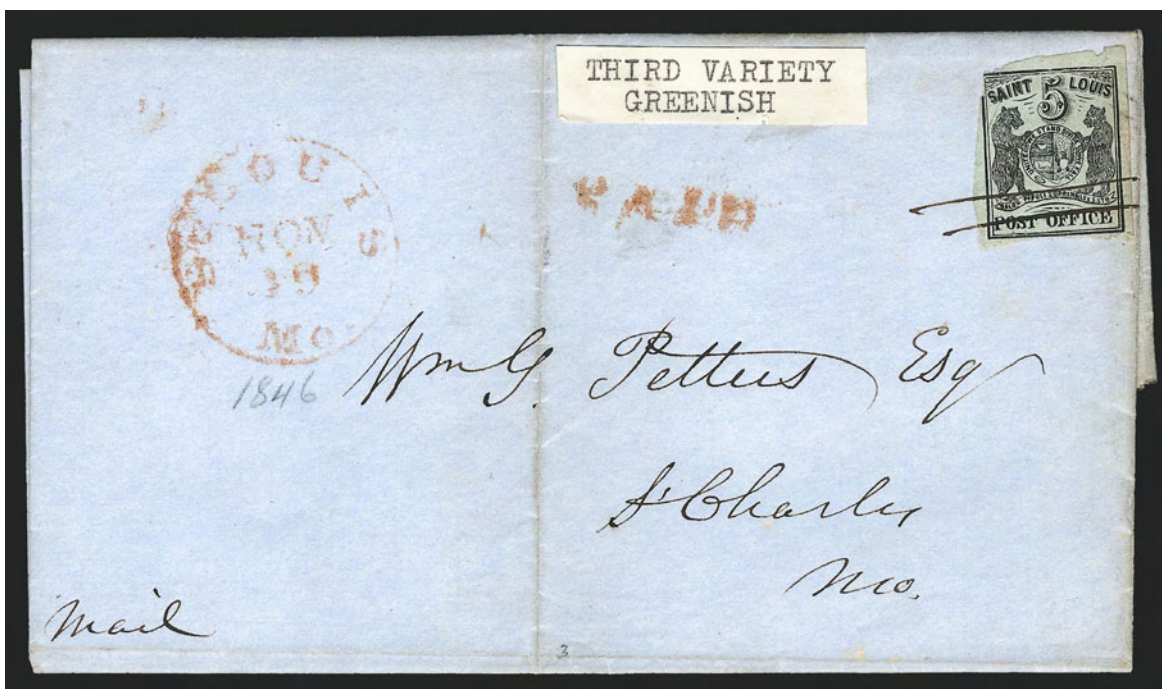 THIRD VARIETY
GREENISH
SAINT 5 LOUIS
POST OFFICE
PAID
ST LOUIS
NOV
Mo.
1846
Wm G. Pettus Esq
St Charles
Mo.
Mail
3